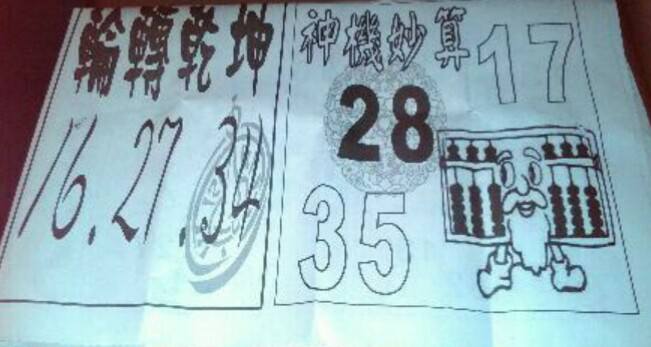 輪轉乾坤
16.27.34
神機妙算
17
28
35